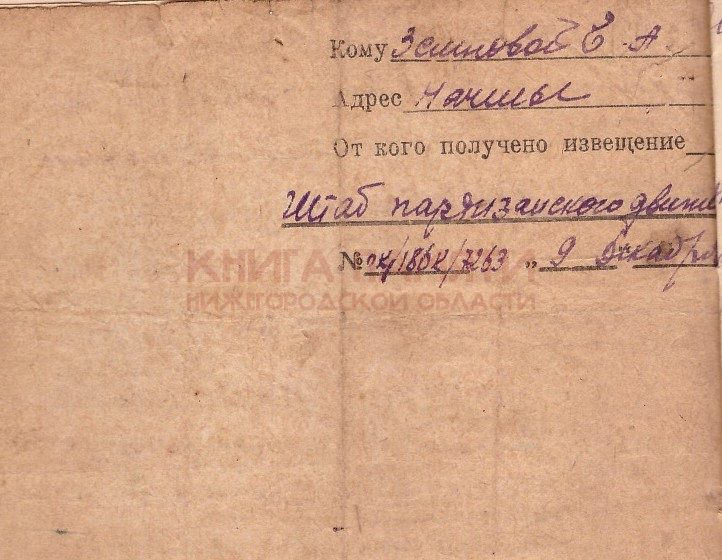 Кому Зеиновой Е. А.
Адрес
От кого получено извещение
Штаб партизанского движ
№ „ 9 декабря
КНИГА ПАМЯТИ
НИЖЕГОРОДСКОЙ ОБЛАСТИ